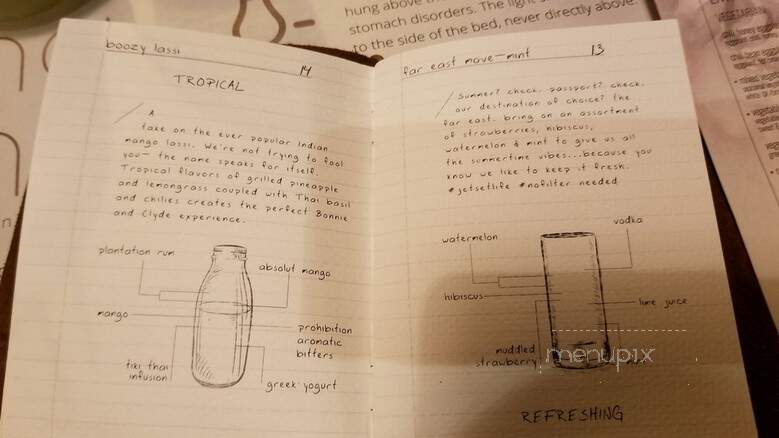 hung above
stomach disorders. The light
to the side of the bed, never directly above
VEGETARIAN
boozy lassi
14
TROPICAL
A
take on the ever popular Indian
mango lassi. We're not trying to fool
you— the name speaks for itself.
Tropical flavors of grilled pineapple
and lemongrass coupled with Thai basil
and chilies creates the perfect Bonnie
and Clyde experience.
plantation rum
absolut mango
mango
prohibition
aromatic
bitters
tiki thai
infusion
greek yogurt
far east move-mint
13
Summer? check. passport? check.
our destination of choice? the
far east. bring on an assortment
of strawberries, hibiscus,
watermelon & mint to give us all
the summertime vibes...because you
know we like to keep it fresh.
#jetsetlife #nofilter needed
vodka
watermelon
hibiscus
lime juice
muddled
strawberry
menupix
REFRESHING